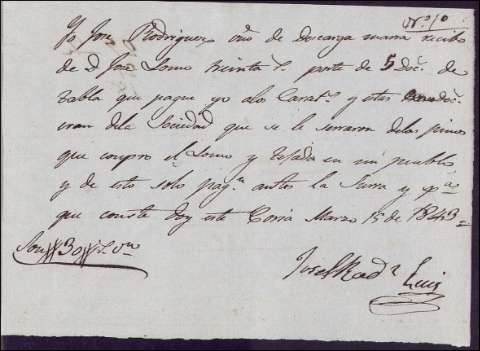 Nº 10
Yo José Rodriguez vº de Descarga maria recibo
de D. José Lomo treinta r.s porte de 5 Doc.s de
tabla que pague yo a los Carat.s y estas Doc.s
eran dela Sociedad que se le serraron delos pinos
que compro el Lomo y en mi pueblo
y de esto solo pag. antes la Sierra y p.a
que conste doy este Coria Marzo 15 de 1843=
Son 30 r.s v.n
José Rod.z Luis